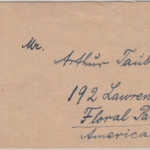 Mr.
Arthur Taub
192 Lawren
Floral Pa
America